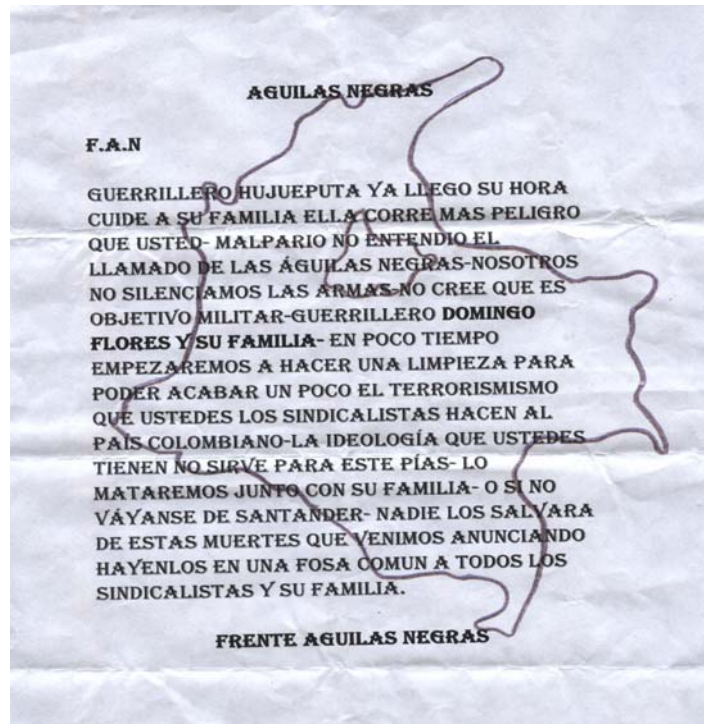 AGUILAS NEGRAS
F.A.N
GUERRILLERO HUJUEPUTA YA LLEGO SU HORA
CUIDE A SU FAMILIA ELLA CORRE MAS PELIGRO
QUE USTED- MALPARIO NO ENTENDIO EL
LLAMADO DE LAS ÁGUILAS NEGRAS-NOSOTROS
NO SILENCIAMOS LAS ARMAS-NO CREE QUE ES
OBJETIVO MILITAR-GUERRILLERO DOMINGO
FLORES Y SU FAMILIA- EN POCO TIEMPO
EMPEZAREMOS A HACER UNA LIMPIEZA PARA
PODER ACABAR UN POCO EL TERRORISMISMO
QUE USTEDES LOS SINDICALISTAS HACEN AL
PAÍS COLOMBIANO-LA IDEOLOGÍA QUE USTEDES
TIENEN NO SIRVE PARA ESTE PÍAS- LO
MATAREMOS JUNTO CON SU FAMILIA- O SI NO
VÁYANSE DE SANTANDER- NADIE LOS SALVARA
DE ESTAS MUERTES QUE VENIMOS ANUNCIANDO
HAYENLOS EN UNA FOSA COMUN A TODOS LOS
SINDICALISTAS Y SU FAMILIA.
FRENTE AGUILAS NEGRAS